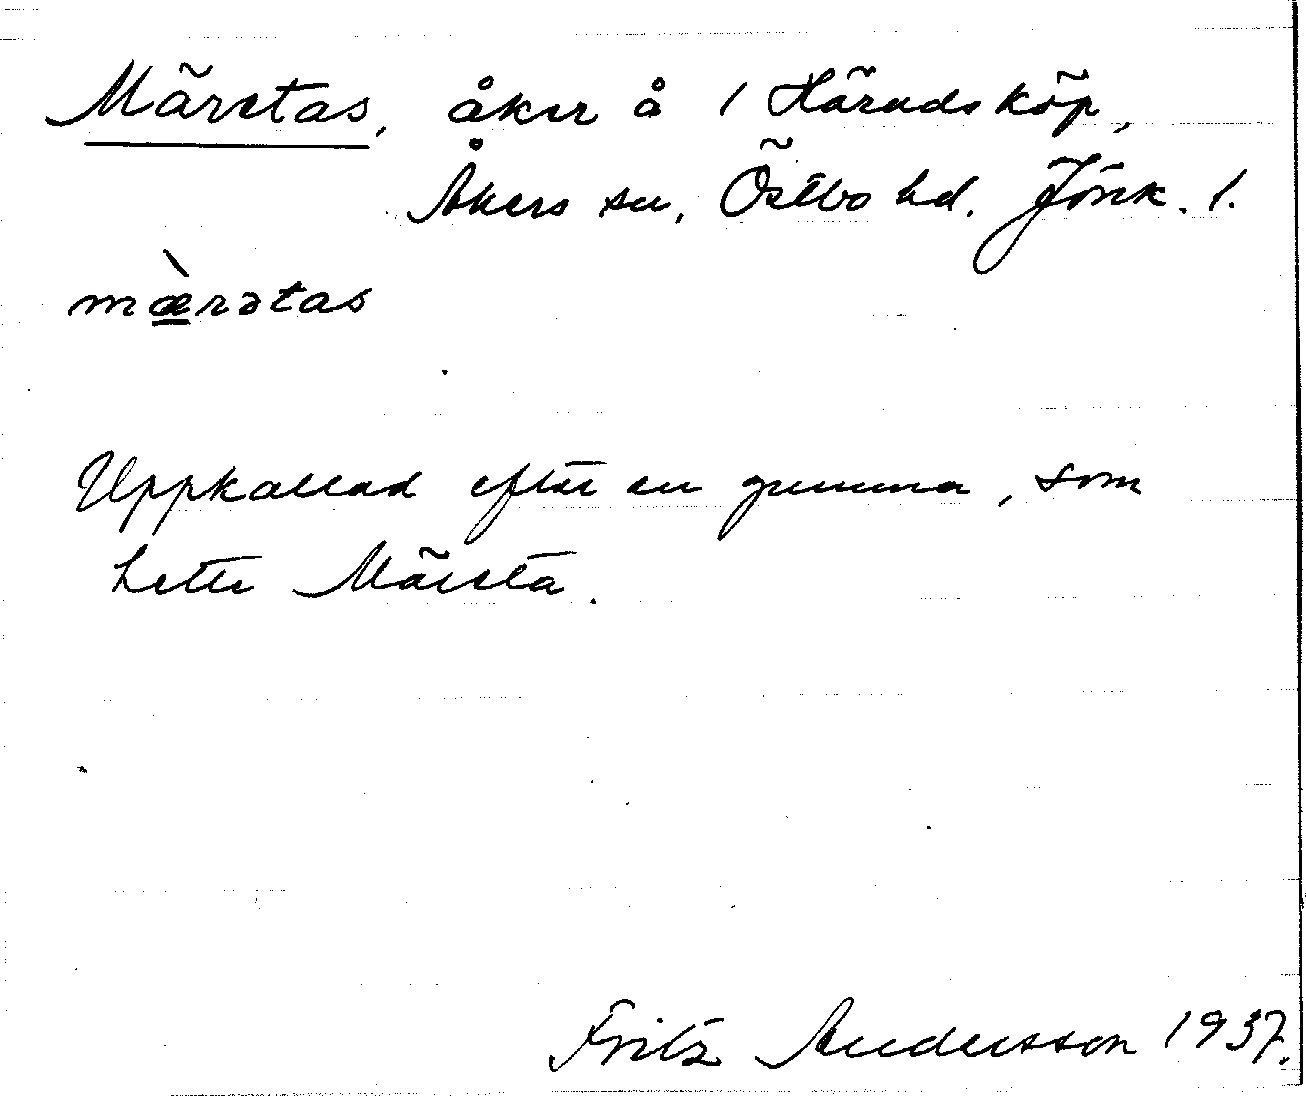 Märetas, åker å 1 Häradsköp,
Åkers sn, Östbo hd. Jönk. l.
mæ̀rətas
Uppkallad efter en gumma, som
hette Märeta.
Fritz Andersson 1937.